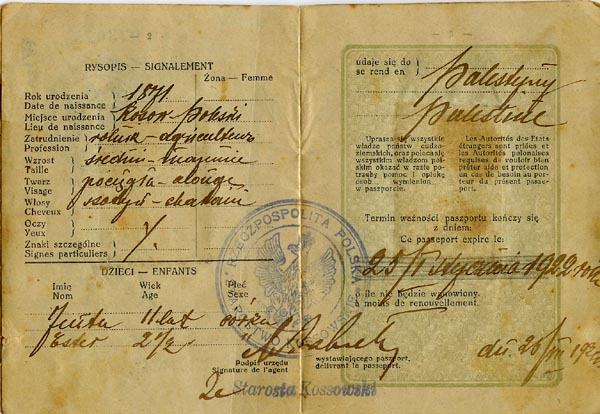 RYSOPIS — SIGNALEMENT
Żona — Femme
Rok urodzenia
Date de naissance
1871
Miejsce urodzenia
Lieu de naissance
Kosow Polski
Zatrudnienie
Profession
rolnik - agriculteur
Wzrost
Taille
średni - moyenne
Twarz
Visage
pociągła - allongé
Włosy
Cheveux
Oczy
Yeux
Znaki szczególne
Signes particuliers
DZIECI — ENFANTS
Imię
Nom
Wiek
Age
Płeć
Sexe
Juta 11 lat
Ester 2 1/2
Podpis urzędu
Signature de l'agent
Starosta Kossowski
RZECZPOSPOLITA POLSKA
udaje się do
se rend en
Palestyny
Palestine
Uprasza się wszystkie
władze państw cudzo-
ziemskich, oraz polecają
wszystkim władzom pol-
skim okazać w razie po-
trzeby pomoc i opiekę
osob wymienion
w paszporcie.
Les Autorités des Etats
étrangers sont priées et
les Autorités polonaises
requises de vouloir bien
prêter aide et protection
en cas de besoin au por-
teur du présent passe-
port.
Termin ważności paszportu kończy się
z dniem:
Ce passeport expire le:
25 stycznia 1922
o ile nie będzie wznowiony.
à moins de renouvellement.
wystawiającego paszport,
délivrant le passeport.